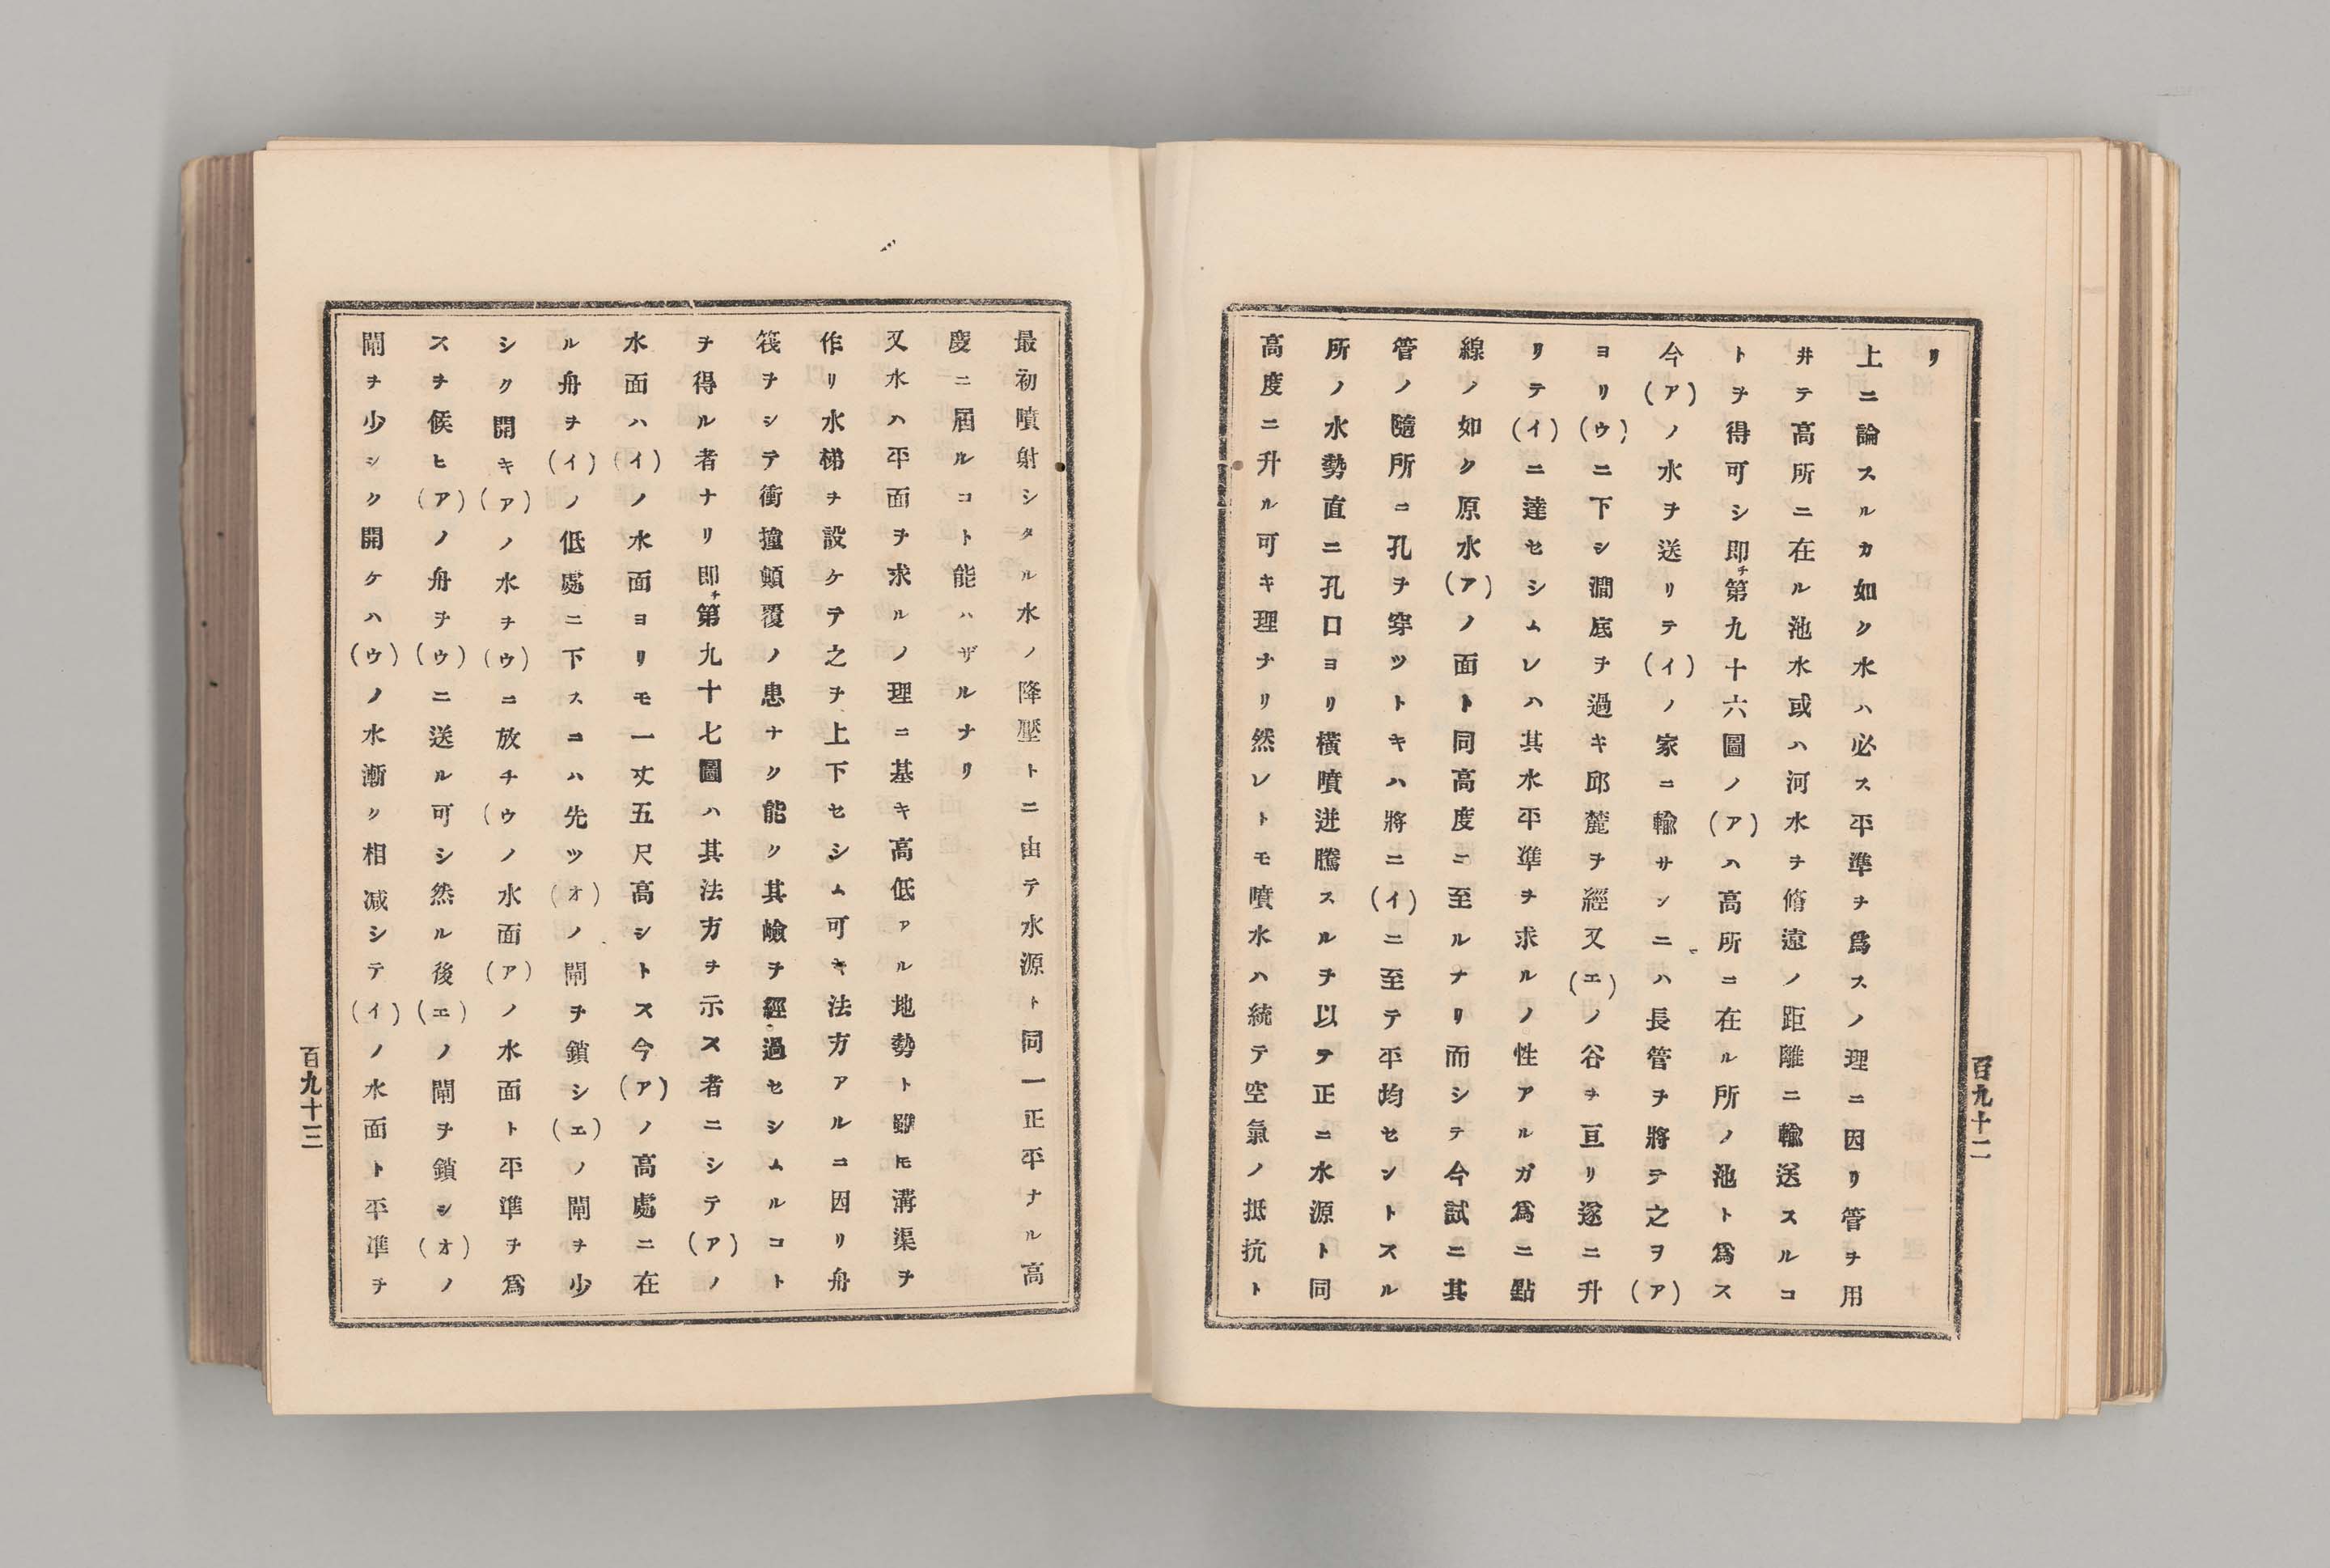 リ
上ニ論スルカ如ク水ハ必ス平準ヲ爲スノ理ニ因リ管ヲ用
井テ高所ニ在ル池水或ハ河水ヲ脩遠ノ距離ニ輸送スルコ
トヲ得可シ即チ第九十六圖ノ(ア)ハ高所ニ在ル所ノ池ト爲ス
今(ア)ノ水ヲ送リテ(イ)ノ家ニ輸サンニハ長管ヲ將テ之ヲ(ア)
ヨリ(ウ)ニ下シ澗底ヲ過キ邱麓ヲ經又(エ)ノ谷ヲ亘リ遂ニ升
リテ(イ)ニ達セシムレハ其水平準ヲ求ルノ性アルガ爲ニ點
線ノ如ク原水(ア)ノ面ト同高度ニ至ルナリ而シテ今試ニ其
管ノ隨所ニ孔ヲ穿ツトキハ將ニ(イ)ニ至テ平均セントスル
所ノ水勢直ニ孔口ヨリ横噴迸騰スルヲ以テ正ニ水源ト同
高度ニ升ル可キ理ナリ然レトモ噴水ハ統テ空氣ノ抵抗ト
百九十二
最初噴射シタル水ノ降壓トニ由テ水源ト同一正平ナル高
度ニ屆ルコト能ハザルナリ
又水ハ平面ヲ求ルノ理ニ基キ高低アル地勢ト雖モ溝渠ヲ
作リ水梯ヲ設ケテ之ヲ上下セシム可キ法方アルニ因リ舟
筏ヲシテ衝撞顛覆ノ患ナク能ク其嶮ヲ經過セシムルコト
ヲ得ル者ナリ即チ第九十七圖ハ其法方ヲ示ス者ニシテ(ア)ノ
水面ハ(イ)ノ水面ヨリモ一丈五尺高シトス今(ア)ノ高處ニ在
ル舟ヲ(イ)ノ低處ニ下スニハ先ツ(オ)ノ閘ヲ鎖シ(エ)ノ閘ヲ少
シク開キ(ア)ノ水ヲ(ウ)ニ放チ(ウ)ノ水面(ア)ノ水面ト平準ヲ爲
スヲ候ヒ(ア)ノ舟ヲ(ウ)ニ送ル可シ然ル後(エ)ノ閘ヲ鎖シ(オ)ノ
閘ヲ少シク開ケハ(ウ)ノ水漸ク相减シテ(イ)ノ水面ト平準ヲ
百九十三